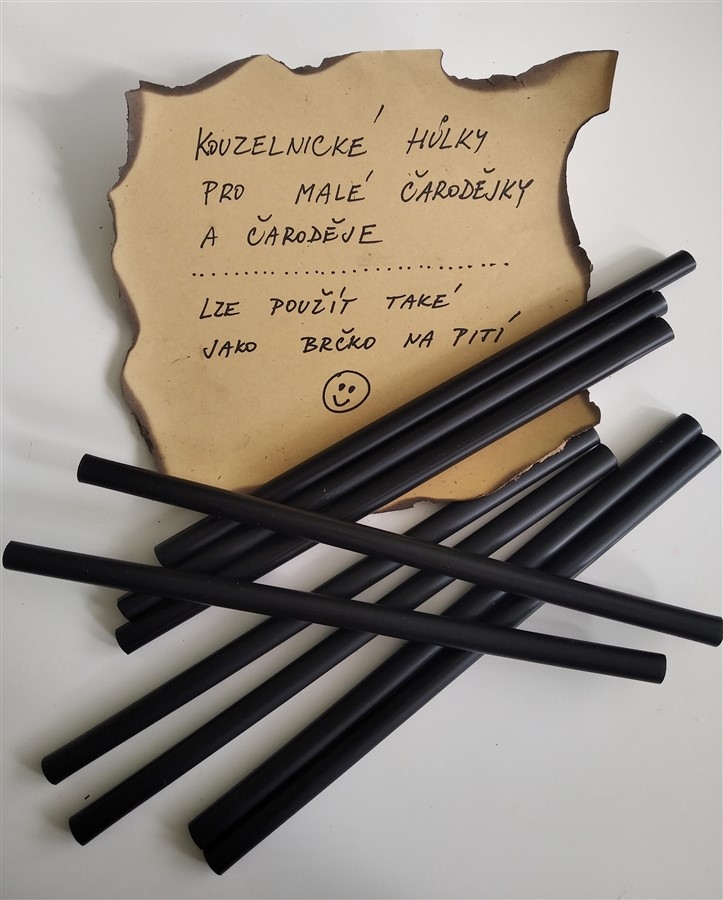 KOUZELNICKÉ HŮLKY
PRO MALÉ ČARODĚJKY
A ČARODĚJE
LZE POUŽÍT TAKÉ
JAKO BRČKO NA PITÍ